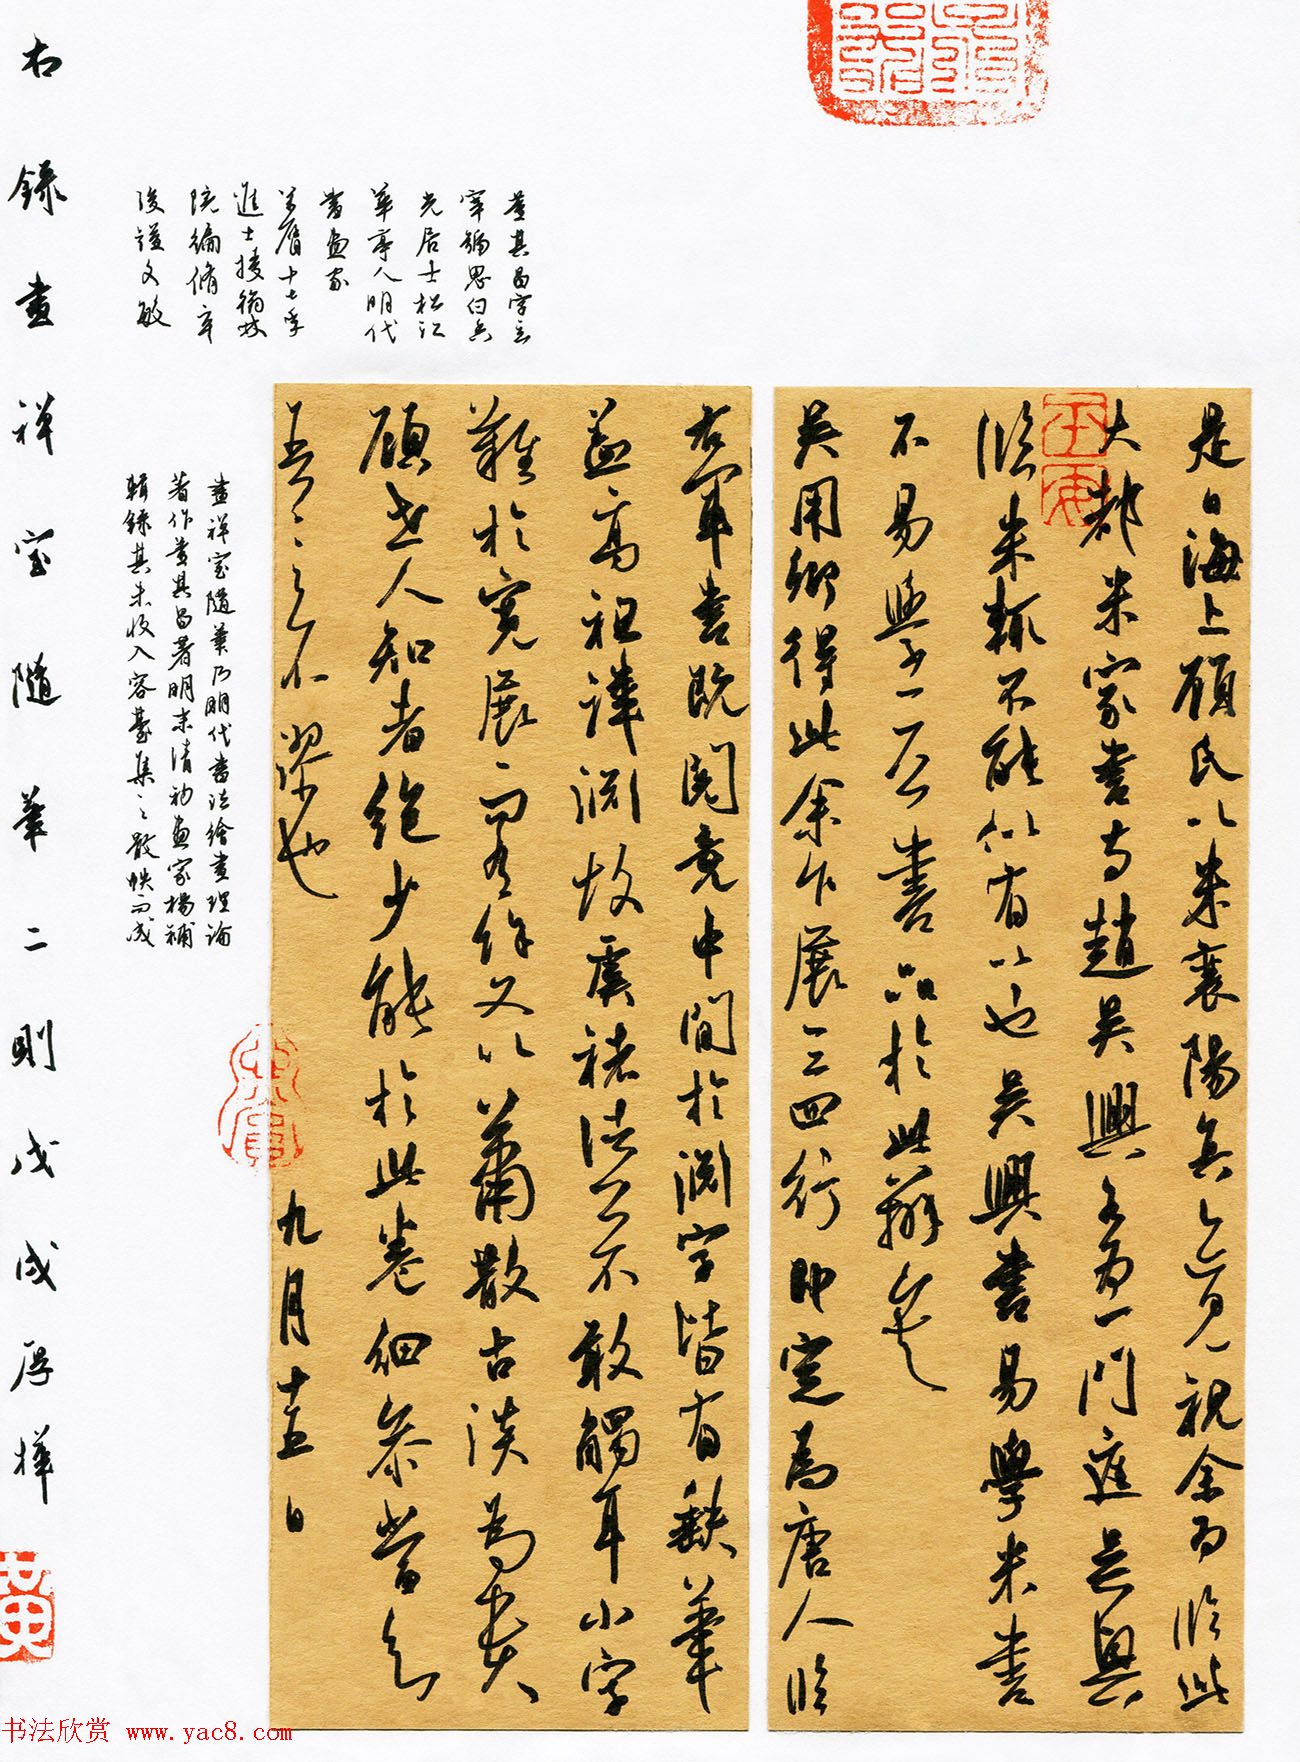 是日海上顧氏以米襄陽真迹見視余為臨此
大都米家書與趙吳興各為一門庭吳興
臨米輒不能似有以也吳興書易學米書
不易學一后書品於此辨矣
吳用卿得此余乍展三四行即定為唐人臨
右軍書既閱竟中間於淵字皆有缺筆
蓋高祖諱淵故虞褚諸公不敢觸耳小字
難於寬展而有餘又以蕭散古淡為貴
顧世人知者絕少能於此卷細參當知
吾言之不謬也
九月十五日
董其昌字玄
宰號思白香
光居士松江
華亭人明代
書畫家
萬曆十七年
進士授翰林
院編修卒
後謚文敏
畫禪室隨筆乃明代書法繪畫理論
著作董其昌著明末清初畫家楊補
輯錄其未收入容臺集之散帙而成
右錄畫禪室隨筆二則戊戌厚樺
黄
书法欣赏 www.yac8.com